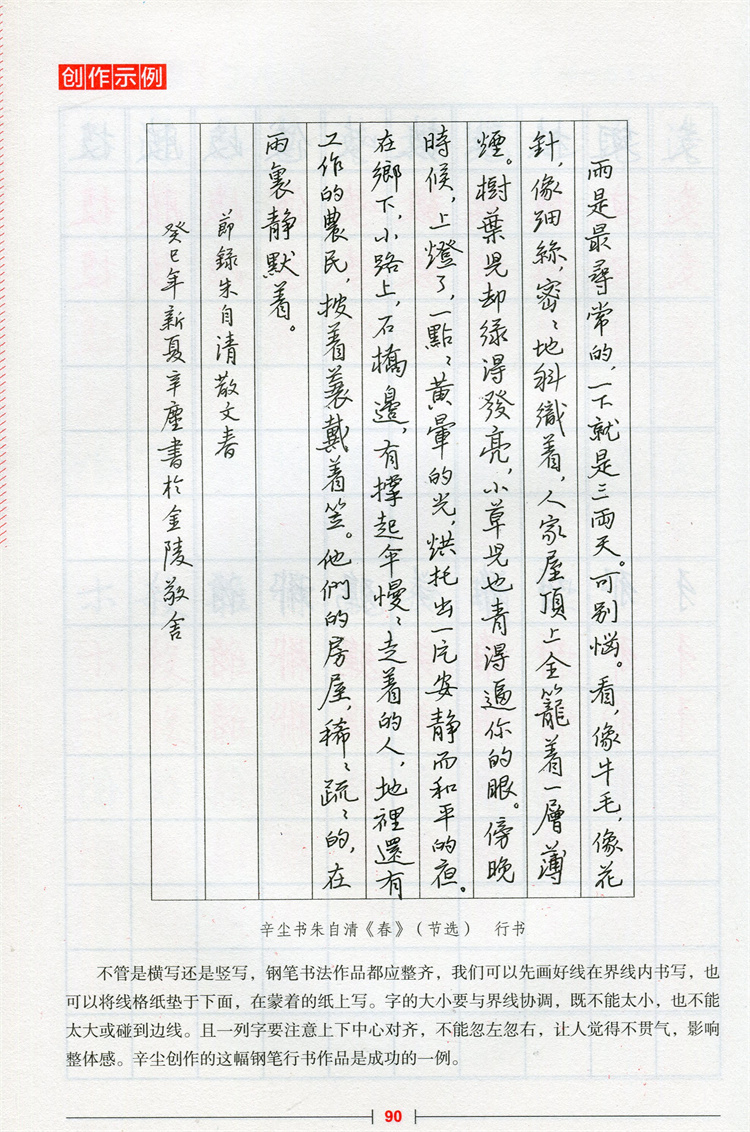 创作示例
雨是最尋常的，一下就是三兩天。可别惱。看，像牛毛，像花
針，像細絲，密〻地斜織着，人家屋頂上全籠着一層薄
煙。樹葉兒却緑得發亮，小草兒也青得逼你的眼。傍晚
時候，上燈了，一點〻黄暈的光，烘托出一片安静而和平的夜。
在鄉下，小路上，石橋邊，有撑起伞慢〻走着的人，地裡還有
工作的農民，披着蓑戴着笠。他們的房屋，稀〻疏〻的，在
雨裏静默着。
節録朱自清散文春
癸巳年新夏辛塵書於金陵敬舍
辛尘书朱自清《春》（节选） 行书
不管是横写还是竖写，钢笔书法作品都应整齐，我们可以先画好线在界线内书写，也
可以将线格纸垫于下面，在蒙着的纸上写。字的大小要与界线协调，既不能太小，也不能
太大或碰到边线。且一列字要注意上下中心对齐，不能忽左忽右，让人觉得不贯气，影响
整体感。辛尘创作的这幅钢笔行书作品是成功的一例。
90